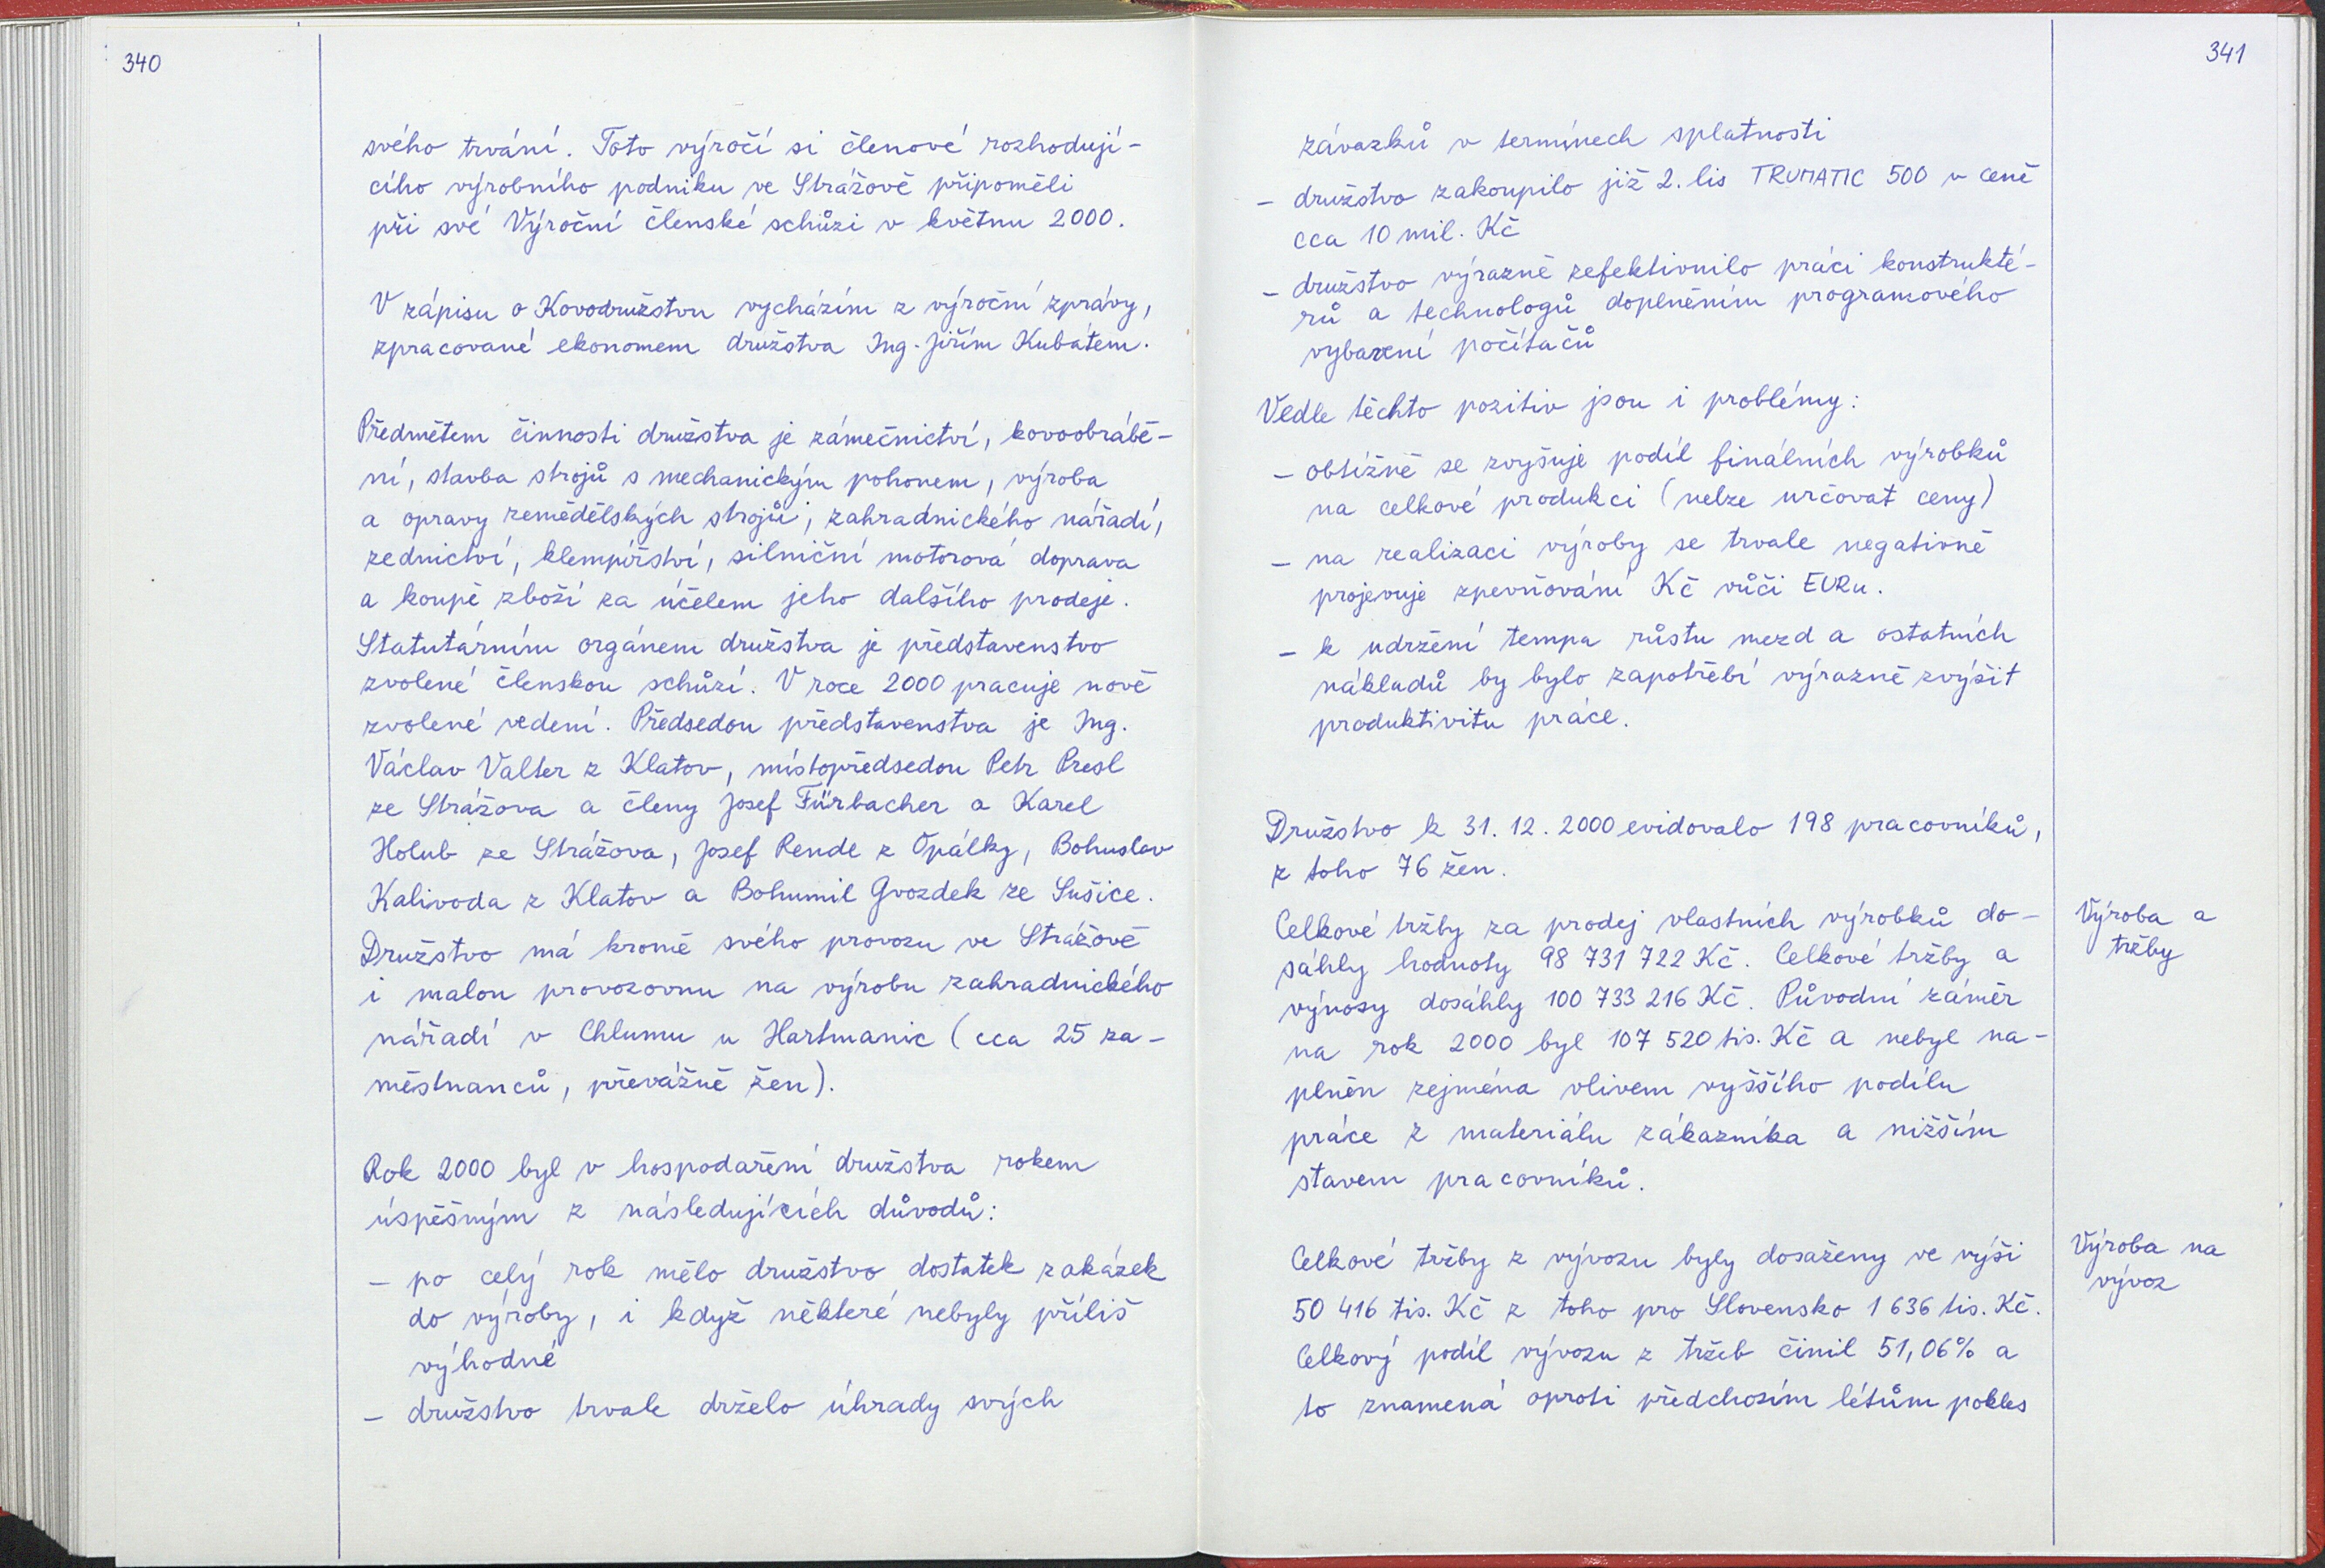 340
svého trvání. Toto výročí si členové rozhodují-
cího výrobního podniku ve Strážově připoměli
při své Výroční členské schůzi v květnu 2000.
V zápisu o Kovodružstvu vycházím z výroční zprávy,
zpracované ekonomem družstva Ing. Jiřím Kubátem.
Předmětem činnosti družstva je zámečnictví, kovoobrábě-
ní, stavba strojů s mechanickým pohonem, výroba
a opravy zemědělských strojů, zahradnického nářadí,
zednictví, klempířství, silniční motorová doprava
a koupě zboží za účelem jeho dalšího prodeje.
Statutárním orgánem družstva je představenstvo
zvolené členskou schůzí. V roce 2000 pracuje nově
zvolené vedení. Předsedou představenstva je Ing.
Václav Valter z Klatov, místopředsedou Petr Presl
ze Strážova a členy Josef Fürbacher a Karel
Holub ze Strážova, Josef Rende z Opálky, Bohuslav
Kalivoda z Klatov a Bohumil Gvozdek ze Sušice.
Družstvo má kromě svého provozu ve Strážově
i malou provozovnu na výrobu zahradnického
nářadí v Chlumu u Hartmanic (cca 25 za-
městnanců, převážně žen).
Rok 2000 byl v hospodaření družstva rokem
úspěšným z následujících důvodů:
- po celý rok mělo družstvo dostatek zakázek
do výroby, i když některé nebyly příliš
výhodné
- družstvo trvale drželo úhrady svých
341
závazků v termínech splatnosti
- družstvo zakoupilo již 2. lis TRUMATIC 500 v ceně
cca 10 mil. Kč
- družstvo výrazně zefektivnilo práci konstrukté-
rů a technologů doplněním programového
vybavení počítačů
Vedle těchto pozitiv jsou i problémy:
- obtížně se zvyšuje podíl finálních výrobků
na celkové produkci (nelze určovat ceny)
- na realizaci výroby se trvale negativně
projevuje zpevňování Kč vůči EURu.
- k udržení tempa růstu mezd a ostatních
nákladů by bylo zapotřebí výrazně zvýšit
produktivitu práce.
Družstvo k 31. 12. 2000 evidovalo 198 pracovníků,
z toho 76 žen.
Celkové tržby za prodej vlastních výrobků do-
sáhly hodnoty 98 731 722 Kč. Celkové tržby a
výnosy dosáhly 100 733 216 Kč. Původní záměr
na rok 2000 byl 107 520 tis. Kč a nebyl na-
plněn zejména vlivem vyššího podílu
práce z materiálu zákazníka a nižším
stavem pracovníků.
Výroba a
tržby
Celkové tržby z vývozu byly dosaženy ve výši
50 416 tis. Kč z toho pro Slovensko 1 636 tis. Kč.
Celkový podíl vývozu z tržeb činil 51,06% a
to znamená oproti předchozím létům pokles
Výroba na
vývoz